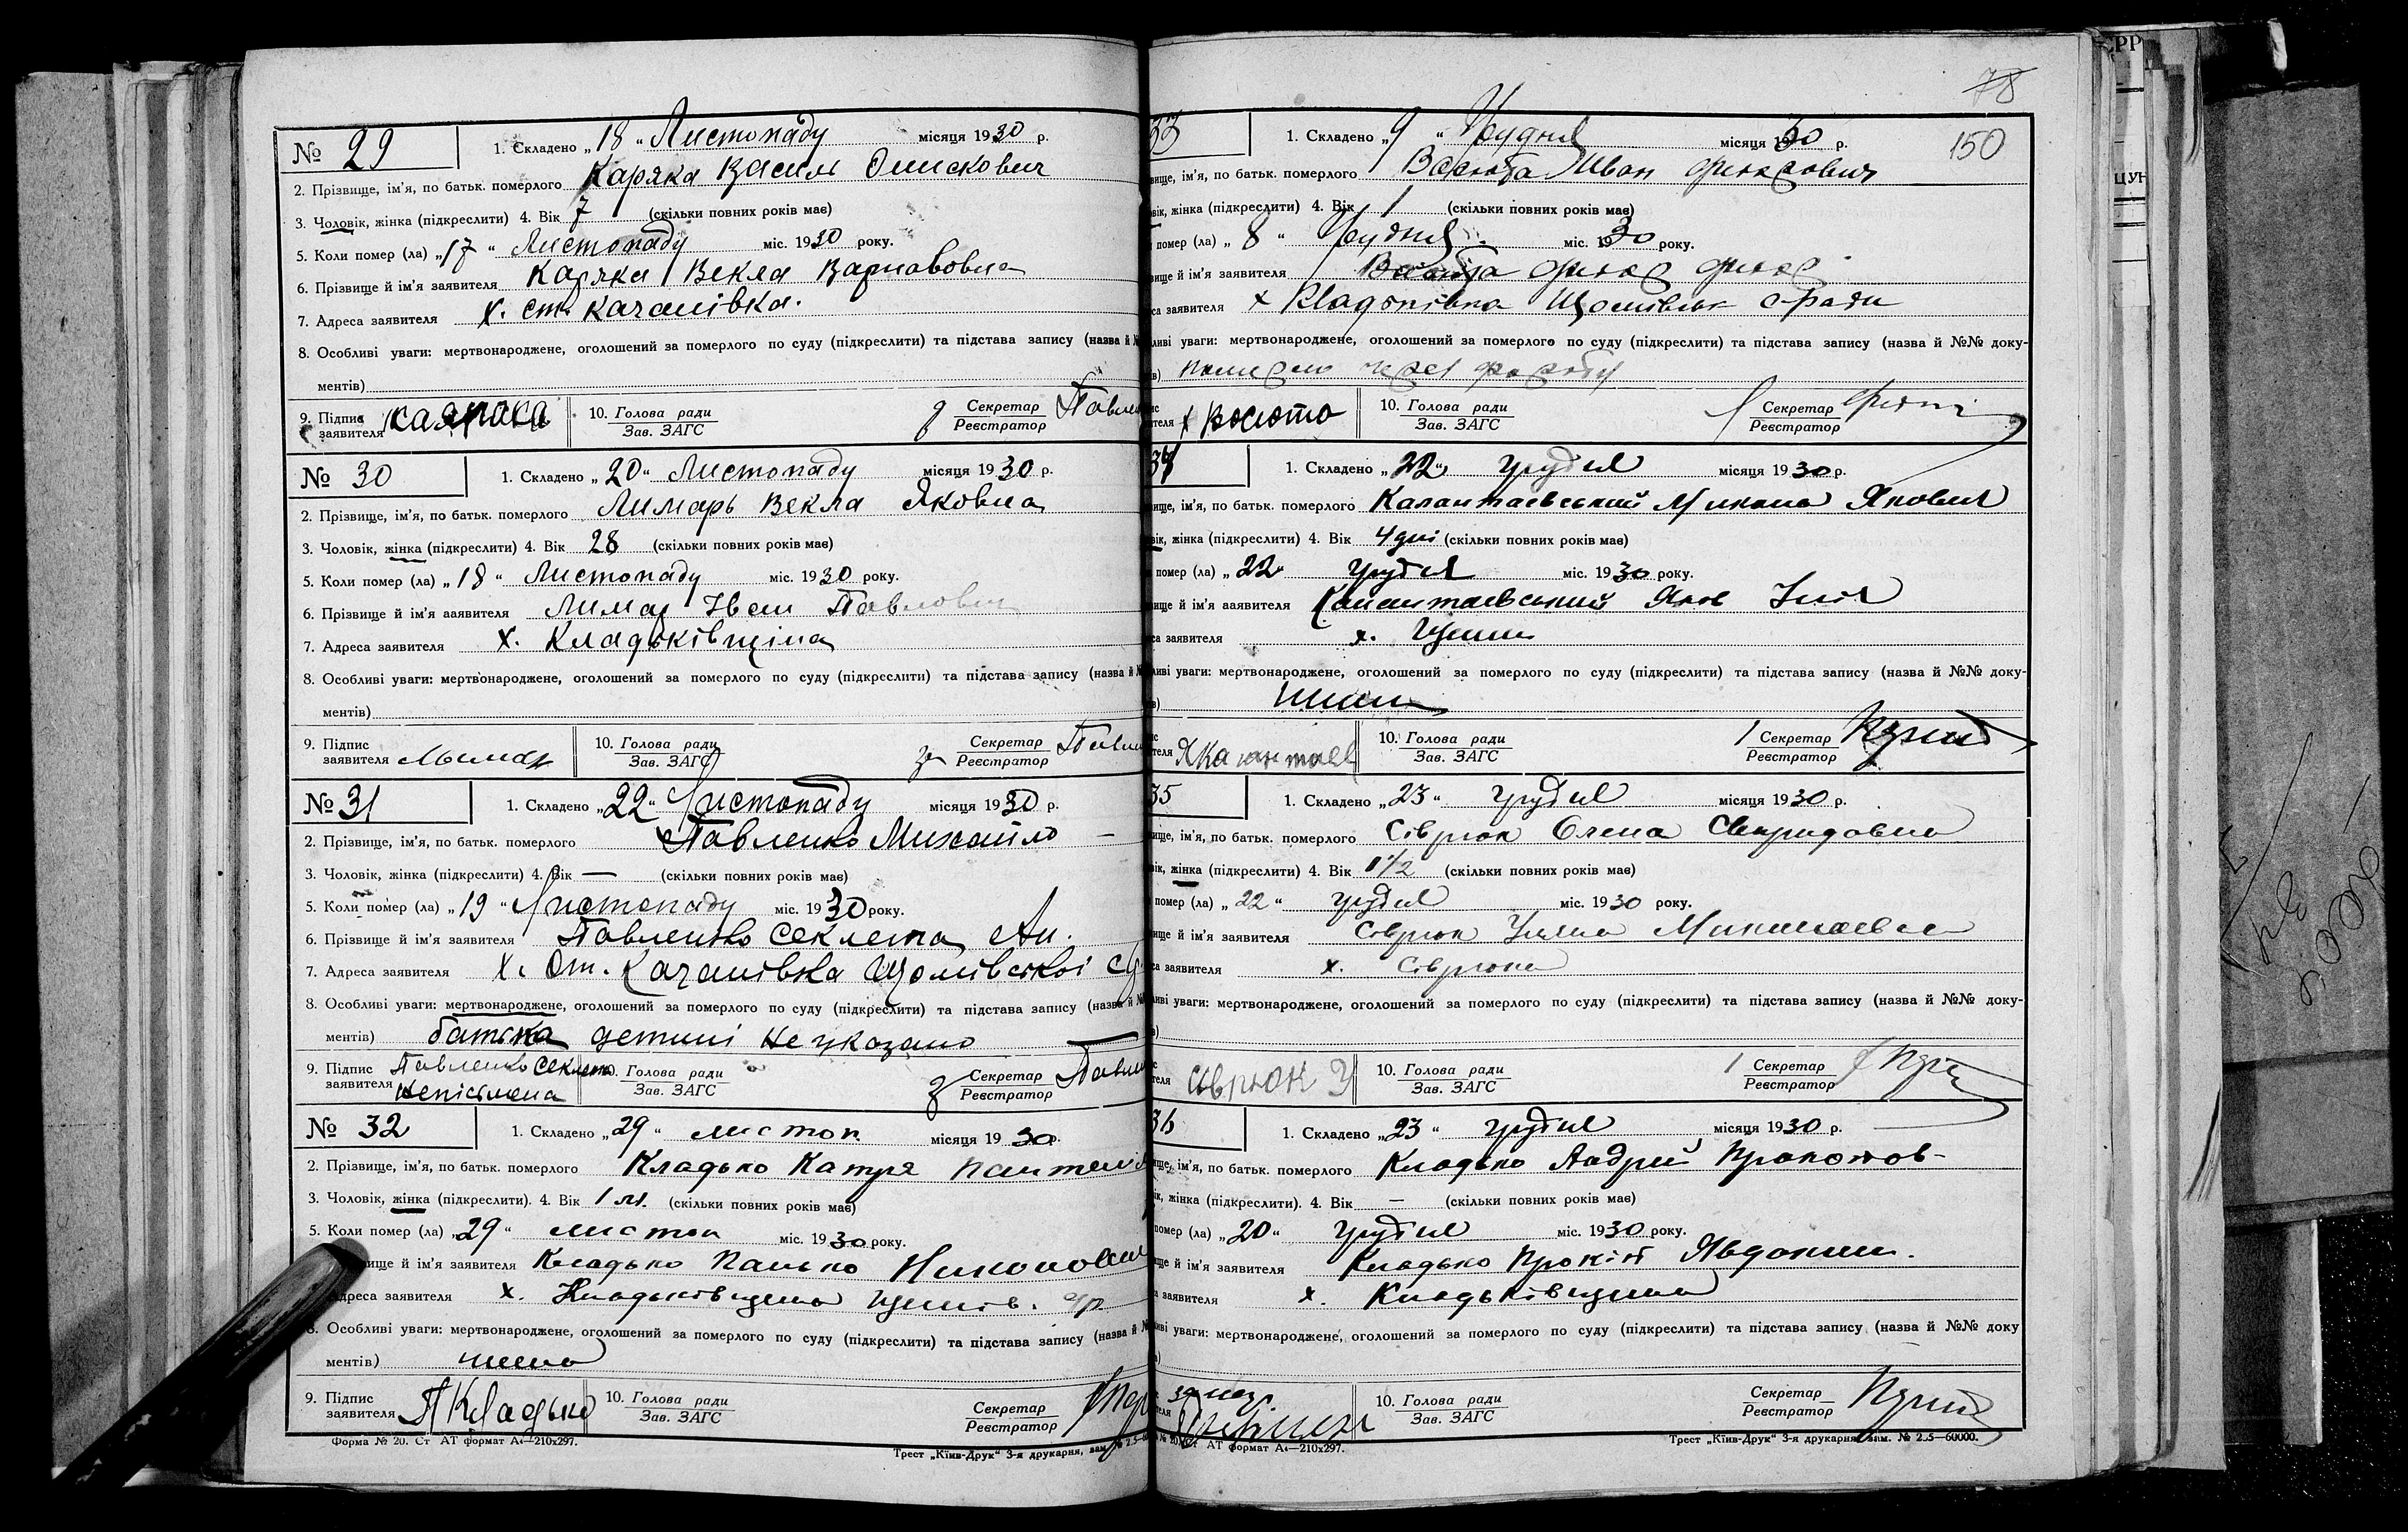 № 29
1. Складено „18“ Листопаду місяця 1930 р.
2. Прізвище, ім'я, по батьк. померлого Каряка Василь Онискович
3. Чоловік, жінка (підкреслити) 4. Вік 7 (скільки повних років має)
5. Коли помер (ла) „17“ Листопаду міс. 1930 року.
6. Прізвище й ім'я заявителя Каряка Векла Варнавовна
7. Адреса заявителя х. ст. Качанівка.
8. Особливі уваги: мертвонароджене, оголошений за померлого по суду (підкреслити) та підстава запису (назва й
ментів)
9. Підпис заявителя
10. Голова ради Зав. ЗАГС
Секретар Реєстратор
№ 30
1. Складено „20“ Листопаду місяця 1930 р.
2. Прізвище, ім'я, по батьк. померлого Лимарь Векла Яковна
3. Чоловік, жінка (підкреслити) 4. Вік 28 (скільки повних років має)
5. Коли помер (ла) „18“ Листопаду міс. 1930 року.
6. Прізвище й ім'я заявителя Лимар Іван Павлович
7. Адреса заявителя х. Кладьківщина
8. Особливі уваги: мертвонароджене, оголошений за померлого по суду (підкреслити) та підстава запису (назва й
ментів)
9. Підпис заявителя
10. Голова ради Зав. ЗАГС
за Секретар Реєстратор
№ 31
1. Складено „22“ Листопаду місяця 1930 р.
2. Прізвище, ім'я, по батьк. померлого Павленко Михайло —
3. Чоловік, жінка (підкреслити) 4. Вік — (скільки повних років має)
5. Коли помер (ла) „19“ Листопаду міс. 1930 року.
6. Прізвище й ім'я заявителя Павленко Секлета Ан.
7. Адреса заявителя х. ст. Качанівка
8. Особливі уваги: мертвонароджене, оголошений за померлого по суду (підкреслити) та підстава запису (назва й
ментів) батька детині не указано
9. Підпис заявителя Павленко Секлета неписьмена
10. Голова ради Зав. ЗАГС
Секретар Реєстратор
№ 32
1. Складено „29“ листоп. місяця 1930 р.
2. Прізвище, ім'я, по батьк. померлого Кладько Катря
3. Чоловік, жінка (підкреслити). 4. Вік 1 м. (скільки повних років має)
5. Коли помер (ла) „29“ листоп міс. 1930 року.
вище й ім'я заявителя Кладько Панько
Адреса заявителя х. Кладьківщина
8. Особливі уваги: мертвонароджене, оголошений за померлого по суду (підкреслити) та підстава запису (назва й
ментів)
9. Підпис заявителя П Кладько
10. Голова ради Зав. ЗАГС
Секретар Реєстратор
Форма № 20. Ст АТ формат А4—210х297.
Трест „Київ-Друк“ 3-я друкарня, зам. № 2.5—60
78
150
33
1. Складено „9“ Грудня місяця 1930 р.
вище, ім'я, по батьк. померлого Васюта Иван
вік, жінка (підкреслити) 4. Вік 1 (скільки повних років має)
помер (ла) „8“ Грудня міс. 1930 року.
вище й ім'я заявителя Васюта
са заявителя х
ливі уваги: мертвонароджене, оголошений за померлого по суду (підкреслити) та підстава запису (назва й №№ доку-
в) через
10. Голова ради Зав. ЗАГС
Секретар Реєстратор
34
1. Складено „22“ грудня місяця 1930 р.
вище, ім'я, по батьк. померлого Калантаевський Микола Якович
вік, жінка (підкреслити) 4. Вік 4 дні (скільки повних років має)
помер (ла) „22“ грудня міс. 1930 року.
вище й ім'я заявителя Калантаевський Яков
са заявителя х.
ливі уваги: мертвонароджене, оголошений за померлого по суду (підкреслити) та підстава запису (назва й №№ доку-
в)
10. Голова ради Зав. ЗАГС
Секретар Реєстратор
35
1. Складено „23“ грудня місяця 1930 р.
вище, ім'я, по батьк. померлого Сіврюк Олена Свиридовна
вік, жінка (підкреслити) 4. Вік 1½ (скільки повних років має)
помер (ла) „22“ грудня міс. 1930 року.
вище й ім'я заявителя Сіврюк Уляна Миколаевна
са заявителя х. Сіврюки
ливі уваги: мертвонароджене, оголошений за померлого по суду (підкреслити) та підстава запису (назва й №№ доку-
в)
сіврюк У
10. Голова ради Зав. ЗАГС
Секретар Реєстратор
36
1. Складено „23“ грудня місяця 1930 р.
вище, ім'я, по батьк. померлого Кладько Андрей Прокопов-
ік, жінка (підкреслити). 4. Вік — (скільки повних років має)
помер (ла) „20“ грудня міс. 1930 року.
вище й ім'я заявителя Кладько Прокіп Явдоким.
а заявителя х. Кладьківщина
ливі уваги: мертвонароджене, оголошений за померлого по суду (підкреслити) та підстава запису (назва й №№ доку
10. Голова ради Зав. ЗАГС
Секретар Реєстратор
АТ формат А4—210х297.
Трест „Київ-Друк“ 3-я друкарня, зам. № 2.5—60000.